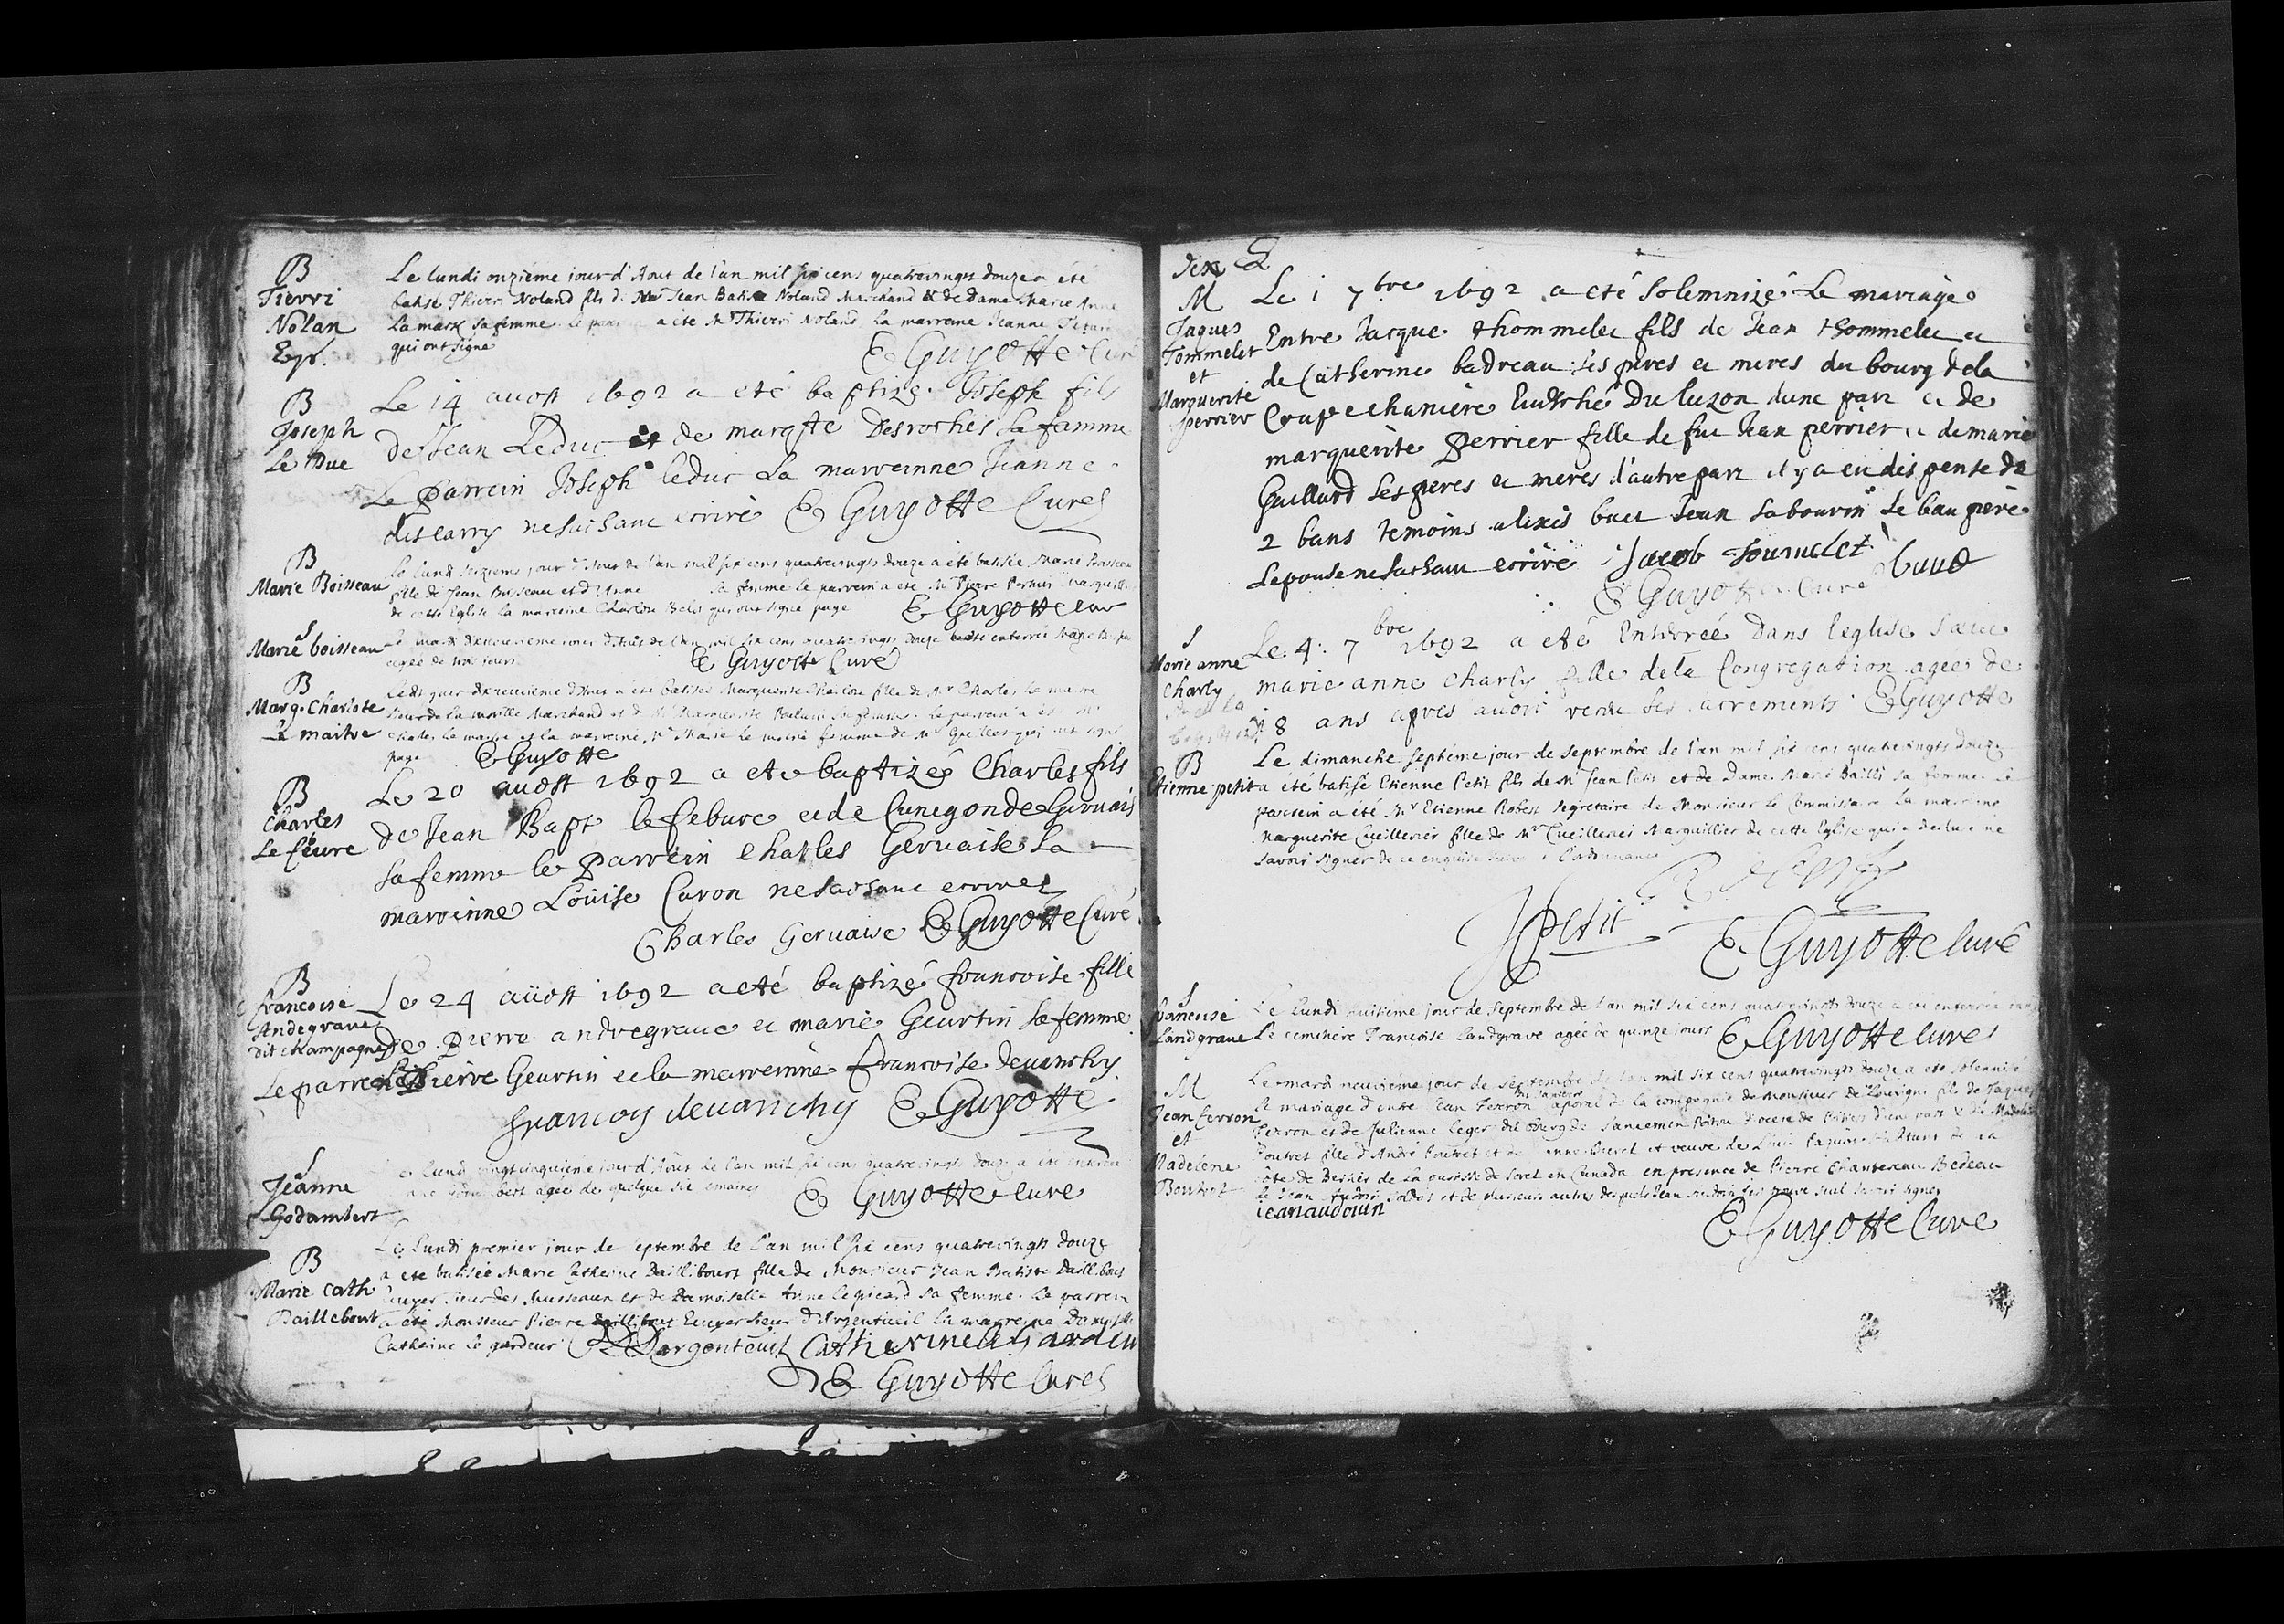 B
Tierri
Nolan
Le lundi onziéme jour d'Aout de l'an mil six cens quatrevingts douze a été
batisé Thierri Noland fils de Mr Jean Batiste Noland Marchand & de Dame Marie Anne
La marq sa femme. Le parrein a été Mr Thierri Noland La marreine Jeanne
qui ont signé
E Guyotte Curé
B
Joseph
Le Duc
Le 14 auost 1692 a eté baptizé Joseph fils
de Jean Leduc et de margtte Desroches sa famme
Le parrein Joseph leduc La marreinne Jeanne
descarry ne sachant ecrire E Guyotte Curé
B
Marie Boisseau
Le lundi jour d'Aout de l'an mil six cens quatrevingts douze a été batisée Marie
fille de Jean Boisseau et d'Anne sa femme le parrein a été Mr Pierre
de cette Eglise la marreine Charlou qui ont signé page E Guyotte cur
S
Marie boisseau
Le mardi dixneuvieme jour d'Aout de l'an mil six cens quatrevingts douze enterrée Marie
agée de trois jours
E Guyotte Curé
B
Marg. Charlote
Le maitre
dixneuvieme d'Aout a été batisée Marguerite Charlote fille de Mr Charles Le maitre
Sieur de Lamorille Marchand et de Marguerite sa femme. Le parrein a été Mr
Charles le maitre et la marreine, Me Marie le moine femme de Mr qui ont signé
page E Guyotte
B
Charles
Le feure
Le 20 auost 1692 a ete baptizé Charles fils
de Jean Bapt lefebure et de Cunegonde Geruais
sa femme le Parrein Charles Geruaise La
marreinne Louise Caron ne sachant ecrire
Charles Geruaise E Guyotte Curé
B
francoise
Andegraue
dit champagne
Le 24 auost 1692 a eté baptizé francoise fille
de Pierre andregraue et marie Geurtin sa femme
Le parrein Pierre Geurtin et la marreinne francoise deuanchy
francoy deuanchy E Guyotte
S
Jeanne
Godambert
lundi vingtcinquiéme jour d'Aout de l'an mil six cens quatrevingts douze a été enterrée
agée de quelque six semaines E Guyotte Curé
B
Marie Cath
Daillebout
Le lundi premier jour de septembre de l'an mil six cens quatrevingts douze
a été batisée Marie Catherine Daillibourt fille de Monsieur Jean Batiste Daillibout
Ecuyer sieur des Musseaux et de Damoiselle Anne le picard sa femme. Le parrein
a été Monsieur Pierre Daillibout Ecuyer sieur D'Argenteuil la marreine Damoiselle
Catherine le gardeur D'argenteuil Catherine legardeur
E Guyotte Curé
M
Jaques
Tommelet
et
Marguerite
perrier
Le 1 7bre 1692 a eté solemnizé Le mariage
Entre Jacque thommelet fils de Jean thommelet et
de Catherine badreau ses peres et meres du bourg de la
Coupechaniere Euesché Du luzon dune part et de
marguerite perrier fille de feu Jean perrier et de marie
Gaillard ses peres et meres d'autre part il y a eu dispense de
2 bans temoins alexis buet Jean sabourin Le bau pere
Lepouse ne sachant ecrire Jacob tourmelet buet
E Guyotte Curé
S
Marie anne
Charly
Le 4. 7bre 1692 a eté Enterrée Dans leglise Sœur
marie anne charly fille de la Congregation agée de
18 ans apres auoir recue ses sacrements E Guyotte
B
Etienne petit
Le dimanche septiéme jour de septembre de l'an mil six cens quatrevingts douze
a été batisé Etienne Petit fils de Mr Jean Petit et de Dame Marie Bailli sa femme. Le
parrein a été Mr Etienne Robert segretaire de Monsieur Le Commissaire La marreine
Marguerite Cueillerier fille de Mr Cueillerier Marguillier de cette Eglise qui a declaré ne
savoir signer de ce enquise suivant l'ordonnance
JPetit
E Guyotte Curé
S
francoise
Landgraue
Le lundi huitieme jour de septembre de l'an mil six cens quatrevingts douze a été enterrée dans
Le cemitiere Françoise Landgrave agée de quinze jours E Guyotte Curé
M
Jean Ferron
et
Madelene
Boutret
Le mardi neuvieme jour de septembre de l'an mil six cens quatrevingts douze a été solennisé
le mariage d'entre Jean Ferron caporal de la compagnie de Monsieur De Louvigni fils de Jaques
Ferron et de Julienne leger du bourg de d'une part & de Madelene
Poutret fille d'André Poutret et de et veuve de
en Canada en presence de Pierre Chantereau Bedeau
de Jean Audoin soldat et de plusieurs autres desquels Jean Audoin s'est trouvé seul savoir signer
ieanaudouin
E Guyotte Curé